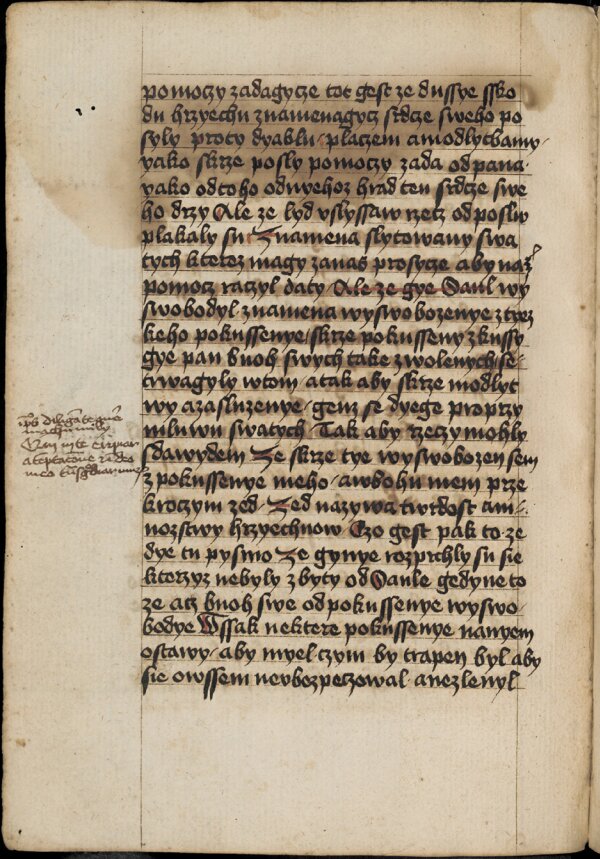 pomoczy zadagycze tot gest ze dussye sskо
du hrzyechu znamenagycz srdcze sweho po
syly proty dyablu placzem amodlytbamy
yako skrze posly pomoczy zada odpana
yako odtoho odnyehoz hrad ten srdcze swe
ho drzy Ale ze lyd vslyssaw rzecz odposluow
plakaly su Znamena slytowany swa
tych kterez magy zanas prosycze aby nam
pomocz raczyl daty Ale ze gye Saul wy
swobodyl znamena wyswobozenye ztyez
keho pokussenye skrze pokusseny zkussy
gye pan buoh swych take zwolenych se
trwagyly wtom atak aby skrze modlyt
wy azasluzenye gem se dyege proprzy
mluwu swatych Tak aby rzeczy mohly
sdawydem Ze skrze tye wyswobozen sem
zpokussenye meho awbohu mem prze
kroczym zed Zed nazywa twrdost am
nozstwy hrzyechuow Czo gest pak to ze
dye tu pysmo Ze gynye rozprchly su sie
kterzyz nebyly zbyty od Saule gedyne to
ze acz buoh swe odpokussenye wyswo
bodye Wssak nektere pokussenye nanyem
ostawy aby myel czym by trapen byl aby
sie owssem neubezpeczowal anezlenyl